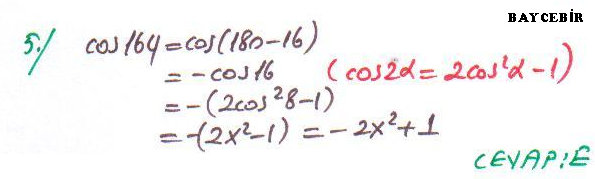 BAY CEBİR
5./ cos164=cos(180-16)
=-cos16 (cos2α=2cos²α-1)
=-(2cos²8-1)
=-(2x²-1) = -2x²+1
CEVAP:E